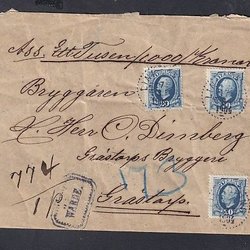 Ass. Ett Tusen /1000/ Kronor
Bryggaren
Herr C. Dimberg
Gråstorps Bryggeri
Grästorp.
1
VÄRDE.